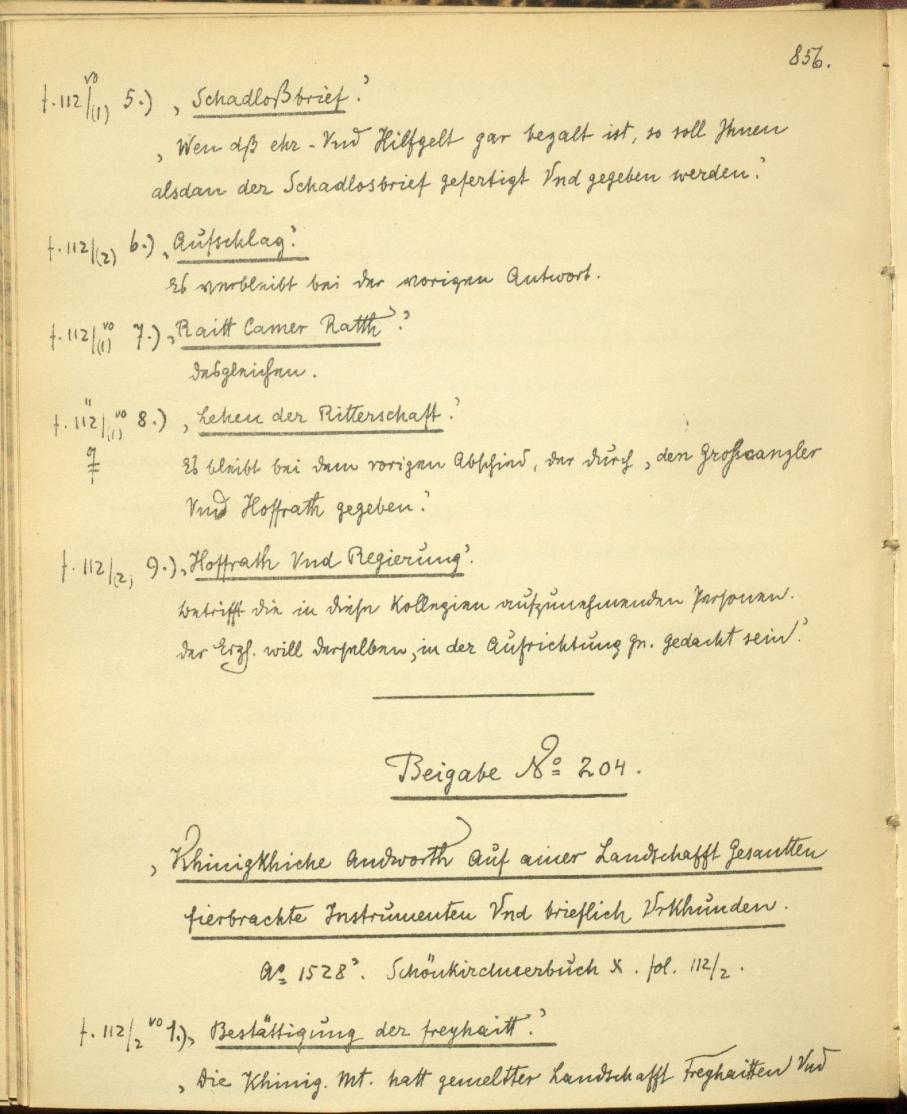 856.
f. 112/(1) vo 5.) „Schadloßbrief.“
„Wen dß ehr- Vnd Hilfgelt gar bezalt ist, so soll Ihnen
alsdan der Schadlosbrief gefertigt Vnd gegeben werden.“
f. 112/(2) 6.) „Aufschlag.“
Es verbleibt bei der vorigen Antwort.
f. 112/(1) vo 7.) „Raitt Camer Ratth“.
desgleichen.
f. 112/(1) vo 8.) „Lehen der Ritterschaft.“
Es bleibt bei dem vorigen Abschied, der durch „den Großcanzler
Vnd Hoffrath gegeben.“
f. 112/(2) 9.) „Hoffrath Vnd Regierung“.
betrifft die in diese Kollegien aufzunehmenden Personen.
der Erzh. will derselben „in der Aufrichtung gn. gedacht sein.“
Beigabe No 204.
„Khinigkhiche Andworth Auf ainer Landschafft Gesantten
fierbrachte Instrumenten Vnd brieflich Vrkhunden.
Ao 1528“. Schönkirchnerbuch X. fol. 112/2.
f. 112/2 vo 1.) „Bestättigung der freyhaitt.“
„Die Khinig. Mt. hatt gemeltter Landschafft Freyhaitten Vnd